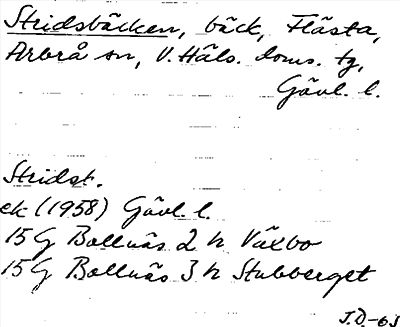 Stridsbäcken, bäck, Flästa,
Arbrå sn, V. Häls. doms. tg,
Gävl. l.
Stridst.
ek (1958) Gävl. l.
15 G Bollnäs 2 h Växbo
15 G Bollnäs 3 h Stubberget
J.D-63